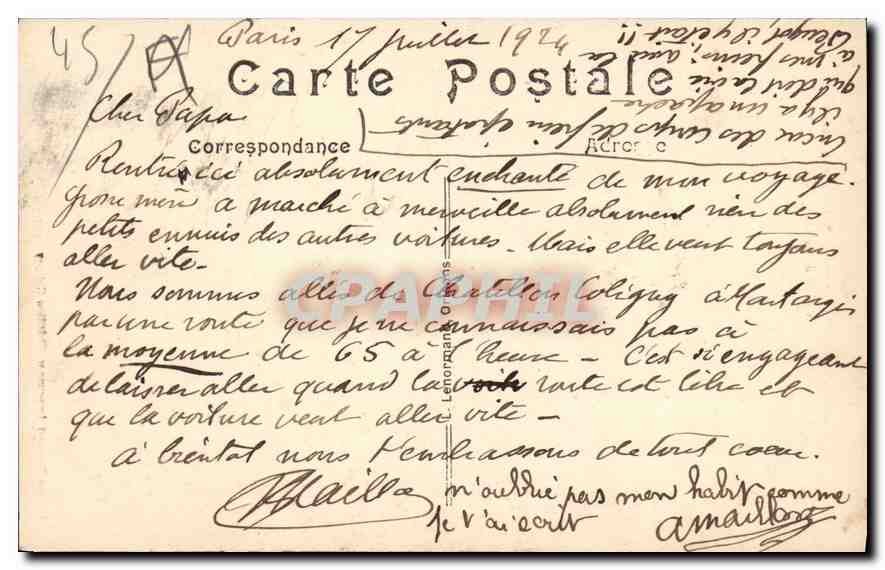 45
Paris 17 Juillet 1924
Carte Postale
Cher Papa
Correspondance
Adresse
Rentré ici absolument enchanté de mon voyage.
grosse mère a marché à merveille absolument rien des
petits ennuis des autres voitures - Mais elle veut toujours
aller vite -
Nous sommes allés de Chatillon Coligny à Montargis
par une route que je ne connaissais pas à
la moyenne de 65 à l'heure - C'est si engageant
de laisser aller quand la route est libre et
que la voiture veut aller vite -
à bientôt nous t'embrassons de tout coeur.
Maillo
n'oublie pas mon habit comme
je t'ai écrit
encore des coups de frein épatants
il y a un apache
qui doit la vie
à mes freins, avec la
Peugeot, il y était !!
Lenormand, Orléans
CPAPHIL